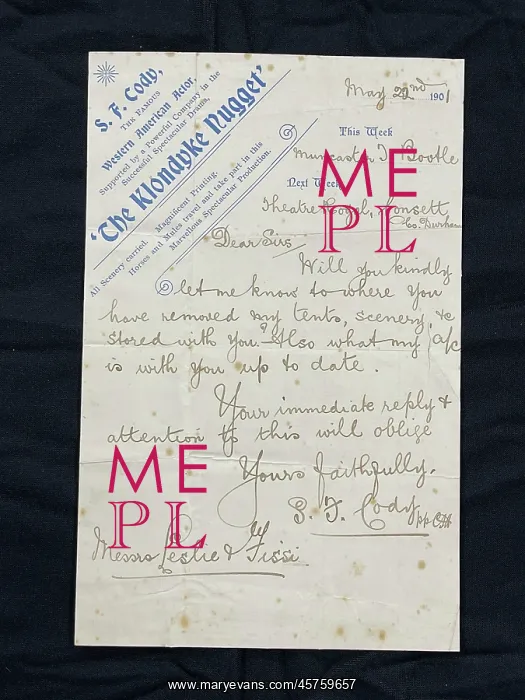 S. F. Cody,
THE FAMOUS
Western American Actor,
Supported by a Powerful Company in the
Successful Spectacular Drama,
'The Klondyke Nugget'
All Scenery carried. Magnificent Printing.
Horses and Mules travel and take part in this
Marvellous Spectacular Production.
May 22nd 1901
This Week
Muncaster T. Bootle
Next Week
Theatre Royal, Consett,
Co. Durham
Dear Sirs
Will you kindly
let me know to where you
have removed my tents, scenery, &c
stored with you? Also what my a/c
is with you up to date.
Your immediate reply &
attention to this will oblige
Yours faithfully.
S. F. Cody
Messrs Leslie &
ME
PL
ME
PL
www.maryevans.com/45759657